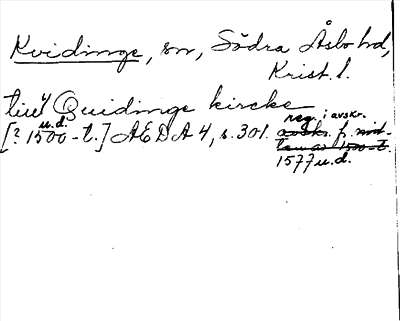 Kvidinge, sn, Södra Åsbo hd,
Krist. l.
till Quidinge kircke
[? 1500-t.] u.d. AEDA 4, s. 301. reg. i avskr.
avskr. f.
1577 u.d.